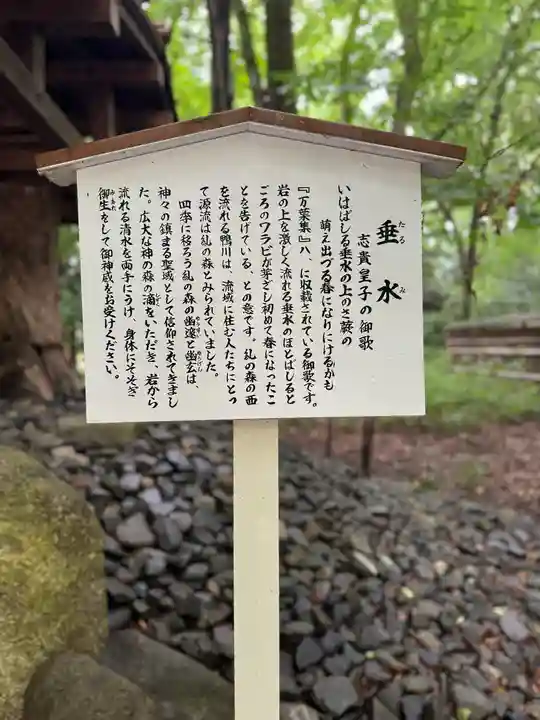 垂水
たるみ
志貴皇子の御歌
いはばしる垂水の上のさ蕨の
萌え出づる春になりにけるかも
『万葉集』八、に収載されている御歌です。
岩の上を激しく流れる垂水のほとばしると
ころのワラビが芽ざし初めて春になったこ
とを告げている、との意です。糺の森の西
を流れる鴨川は、流域に住む人たちにとっ
て源流は糺の森とみられていました。
四季に移ろう糺の森の幽邃と幽玄は、
神々の鎮まる聖域として信仰されてきまし
た。広大な神の森の滴をいただき、岩から
流れる清水を両手にうけ、身体にそそぎ
御生をして御神威をお受けください。